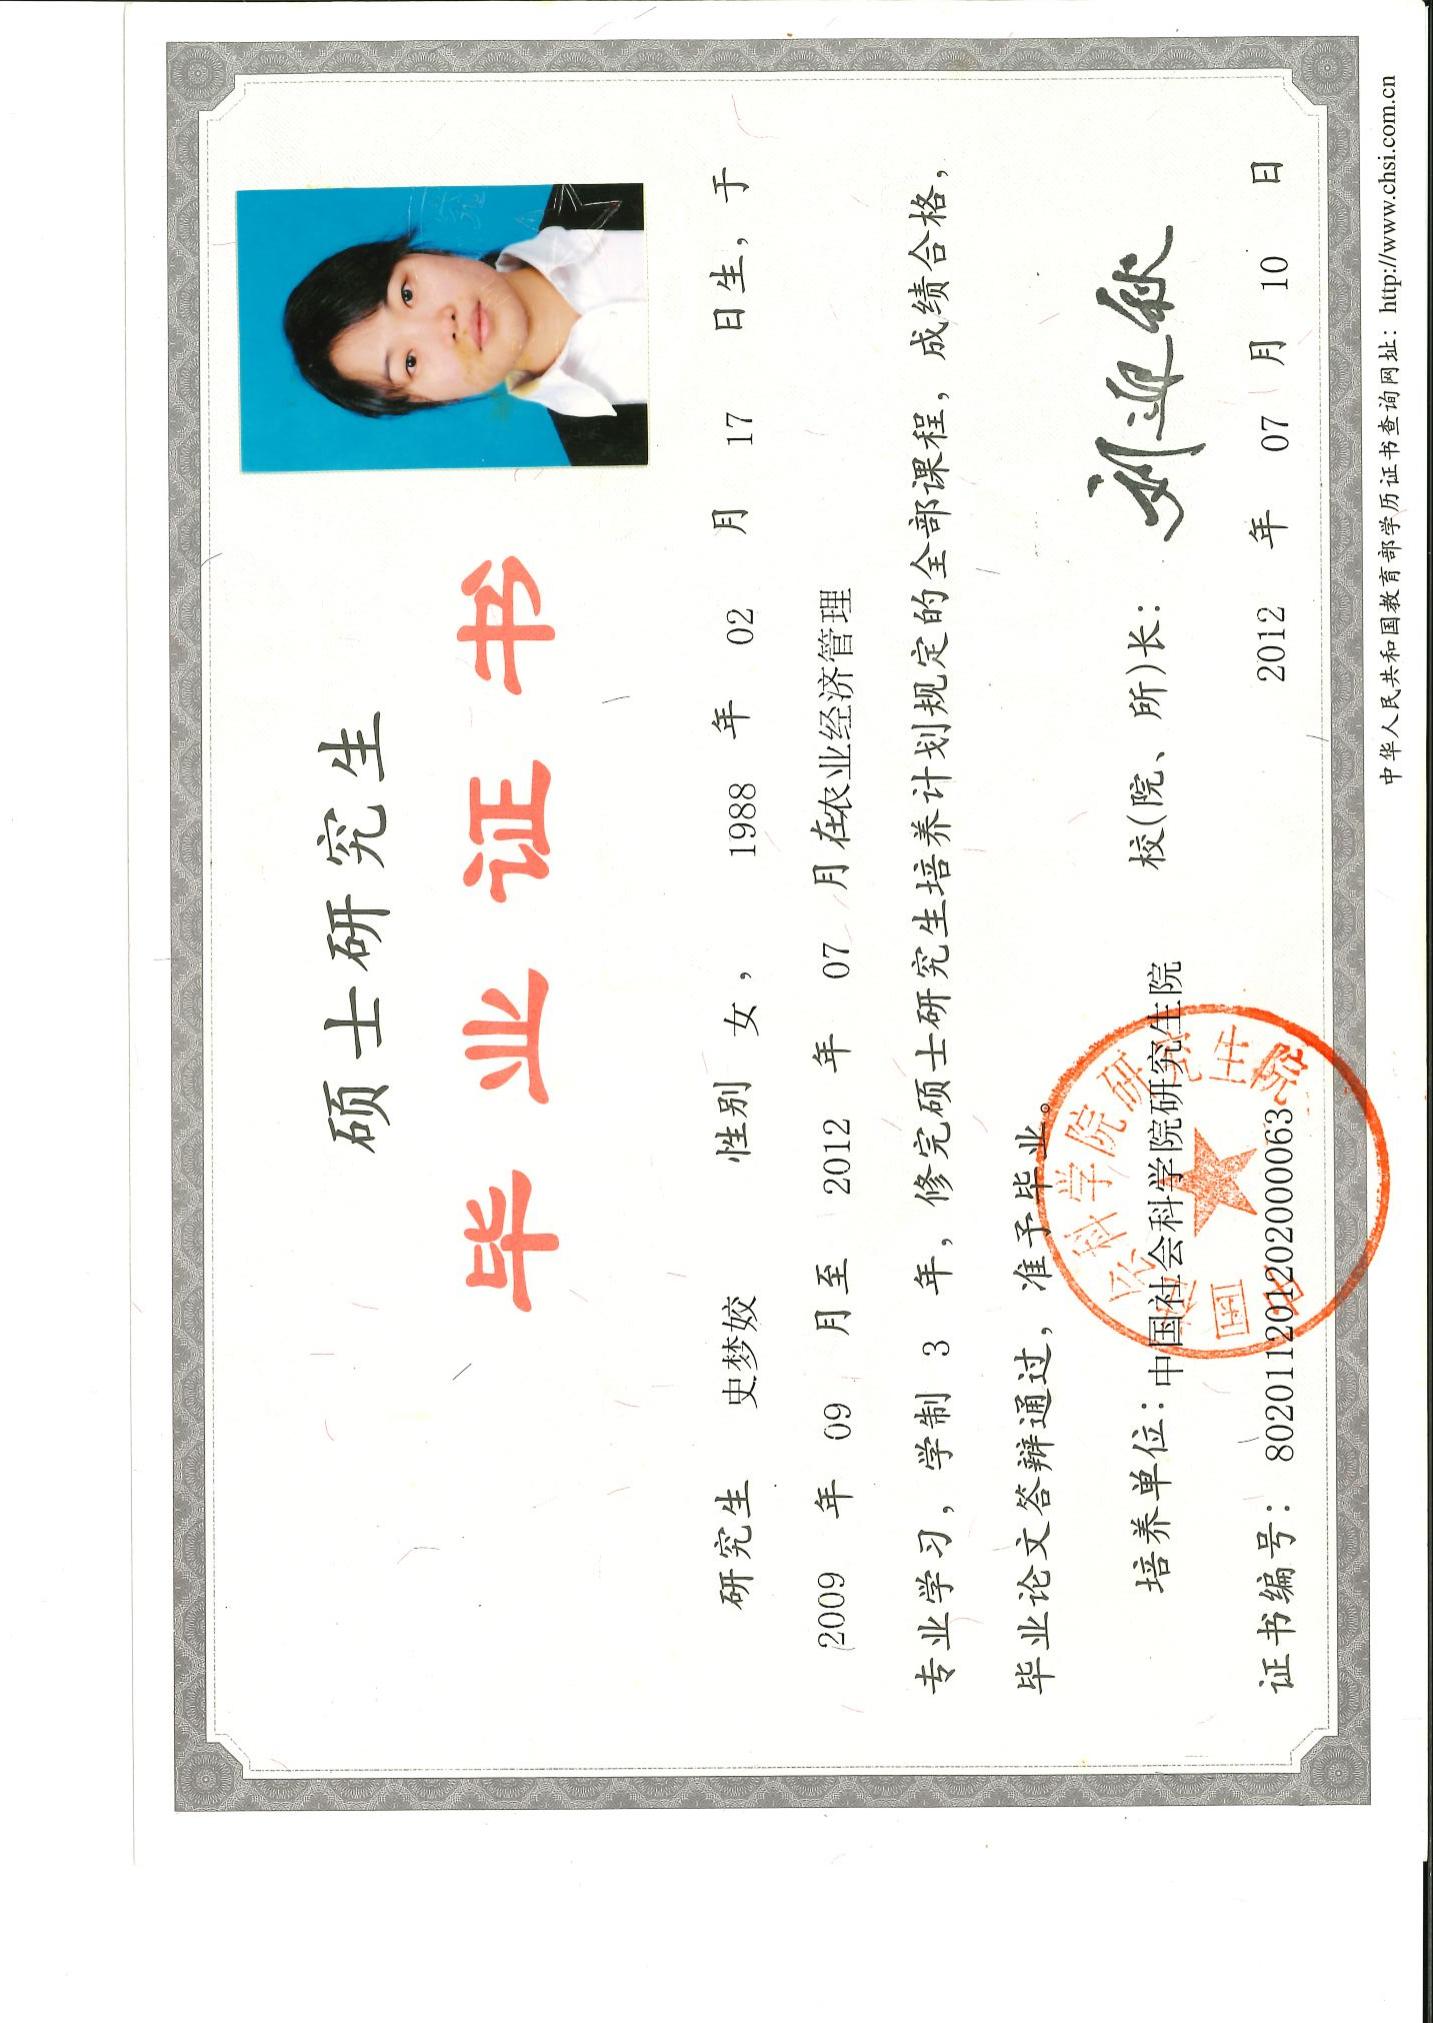 硕士研究生
毕业证书
研究生 史梦姣 性别 女， 1988 年 02 月 17 日生，于
2009 年 09 月至 2012 年 07 月在农业经济管理
专业学习，学制 3 年，修完硕士研究生培养计划规定的全部课程，成绩合格，
毕业论文答辩通过，准予毕业。
培养单位：中国社会科学院研究生院 校(院、所)长：
证书编号：802011201202000063 2012 年 07 月 10 日
中国社会科学院研究生院
中华人民共和国教育部学历证书查询网址：http://www.chsi.com.cn